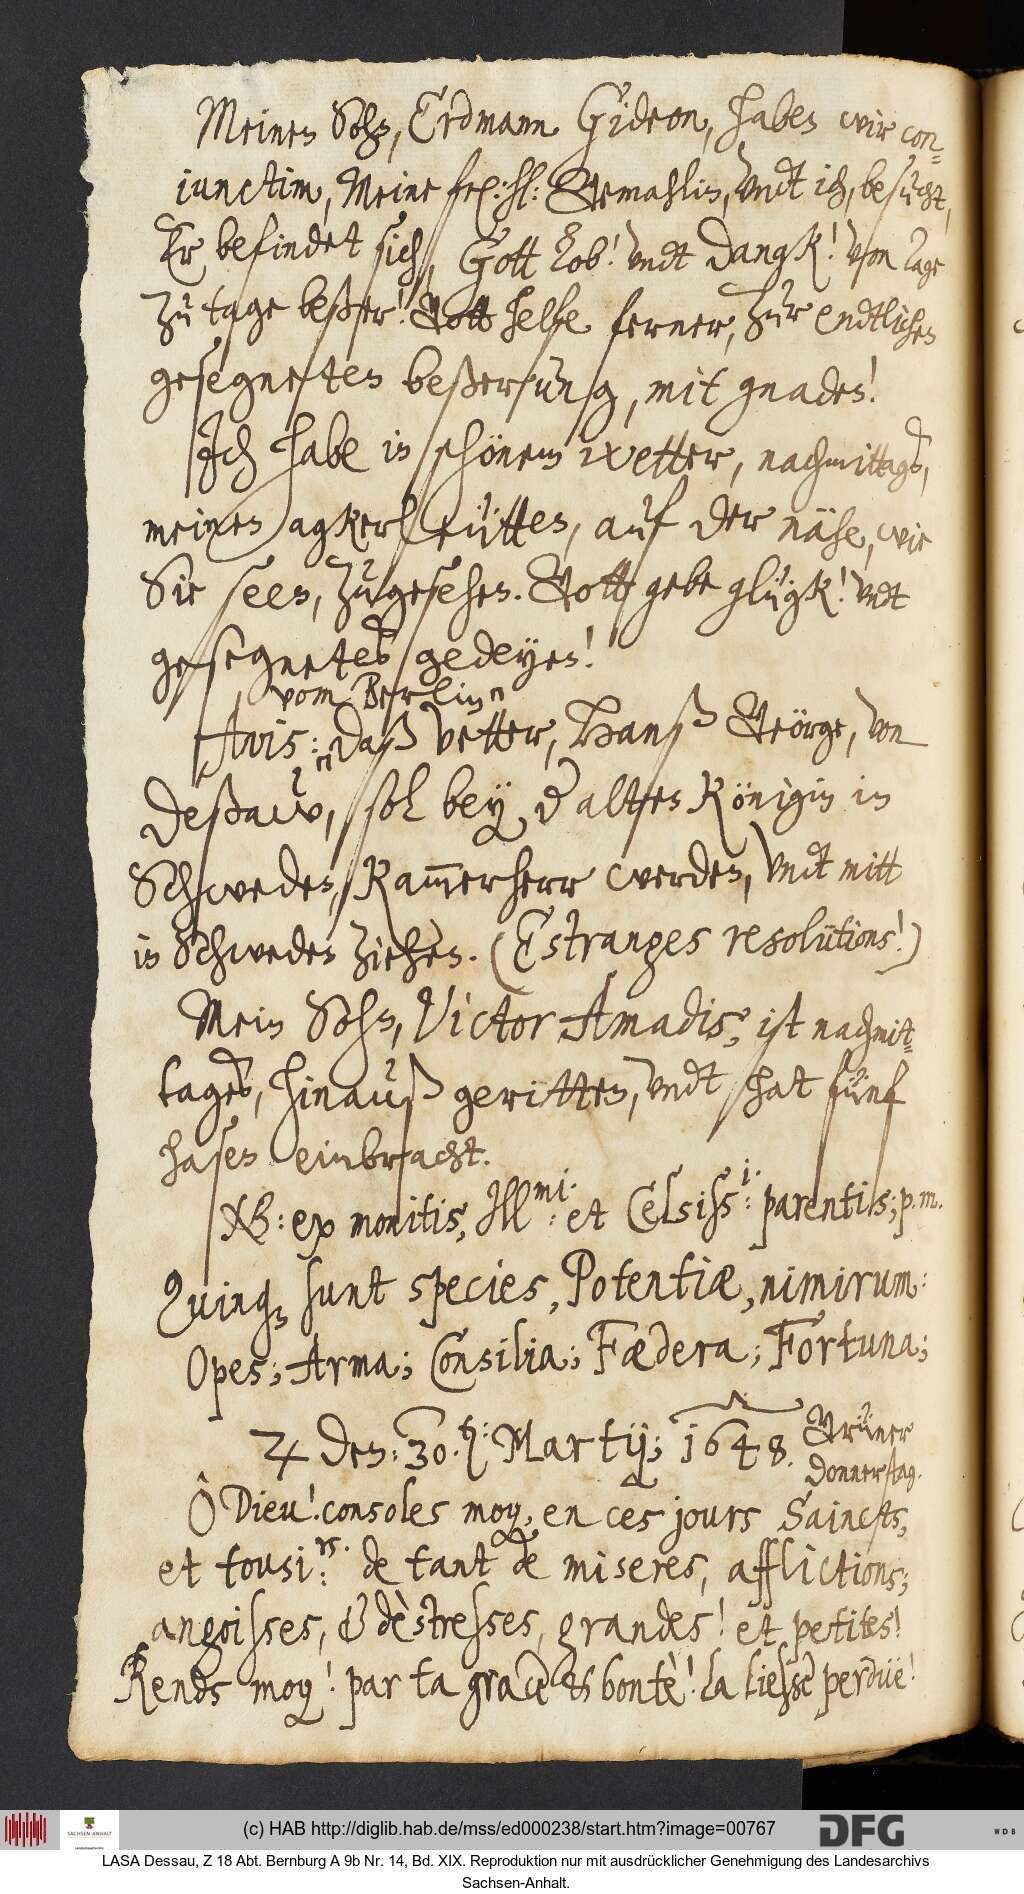 Meinen Sohn, Erdmann Gideon, haben wir con-
iunctim, Meine frl: hl: Gemahlin, vndt ich, besücht,
Er befindet sich, Gott lob! vndt dangk! von tage
zu tage beßer! Gott helfe ferner, zur endtlichen
gesegneten beßerung, mit gnaden!
Ich habe in schönem wetter, nachmittags,
meinen agkerleütten, auf der nähe, wie
Sie seen, zugesehen. Gott gebe glügk! vndt
gesegnetes gedeyen!
vom Berlin
Avis: daß vetter, Hanß Geörge, von
Deßaw, sol bey der alten Königin in
Schweden, Kammerherr werden, vndt mitt
in Schweden ziehen. (Estranges resolütions!)
Mein Sohn, Victor Amadis, ist nachmit-
tages, hinauß geritten, vndt hat fünf
hasen einbracht.
NB: ex monitis, Ill:mi. et Celsiss:i. parentis; p. m.
Quinque sunt species, Potentiæ, nimirum:
Opes; Arma; Consilia; Fœdera; Fortuna;
♃ den: 30.ten: Martij; 1648. Grüner
Donnerstag.
Ô Dieu! consoles moy, en ces jours Saincts,
et tousi:rs. de tant de miseres, afflictions;
angoisses, & dèstresses, grandes! et petites!
Rends moy! par ta grace & bontè! la liesse perdüe!
(c) HAB http://diglib.hab.de/mss/ed000238/start.htm?image=00767
SACHSEN-ANHALT
DFG
WDB
LASA Dessau, Z 18 Abt. Bernburg A 9b Nr. 14, Bd. XIX. Reproduktion nur mit ausdrücklicher Genehmigung des Landesarchivs
Sachsen-Anhalt.